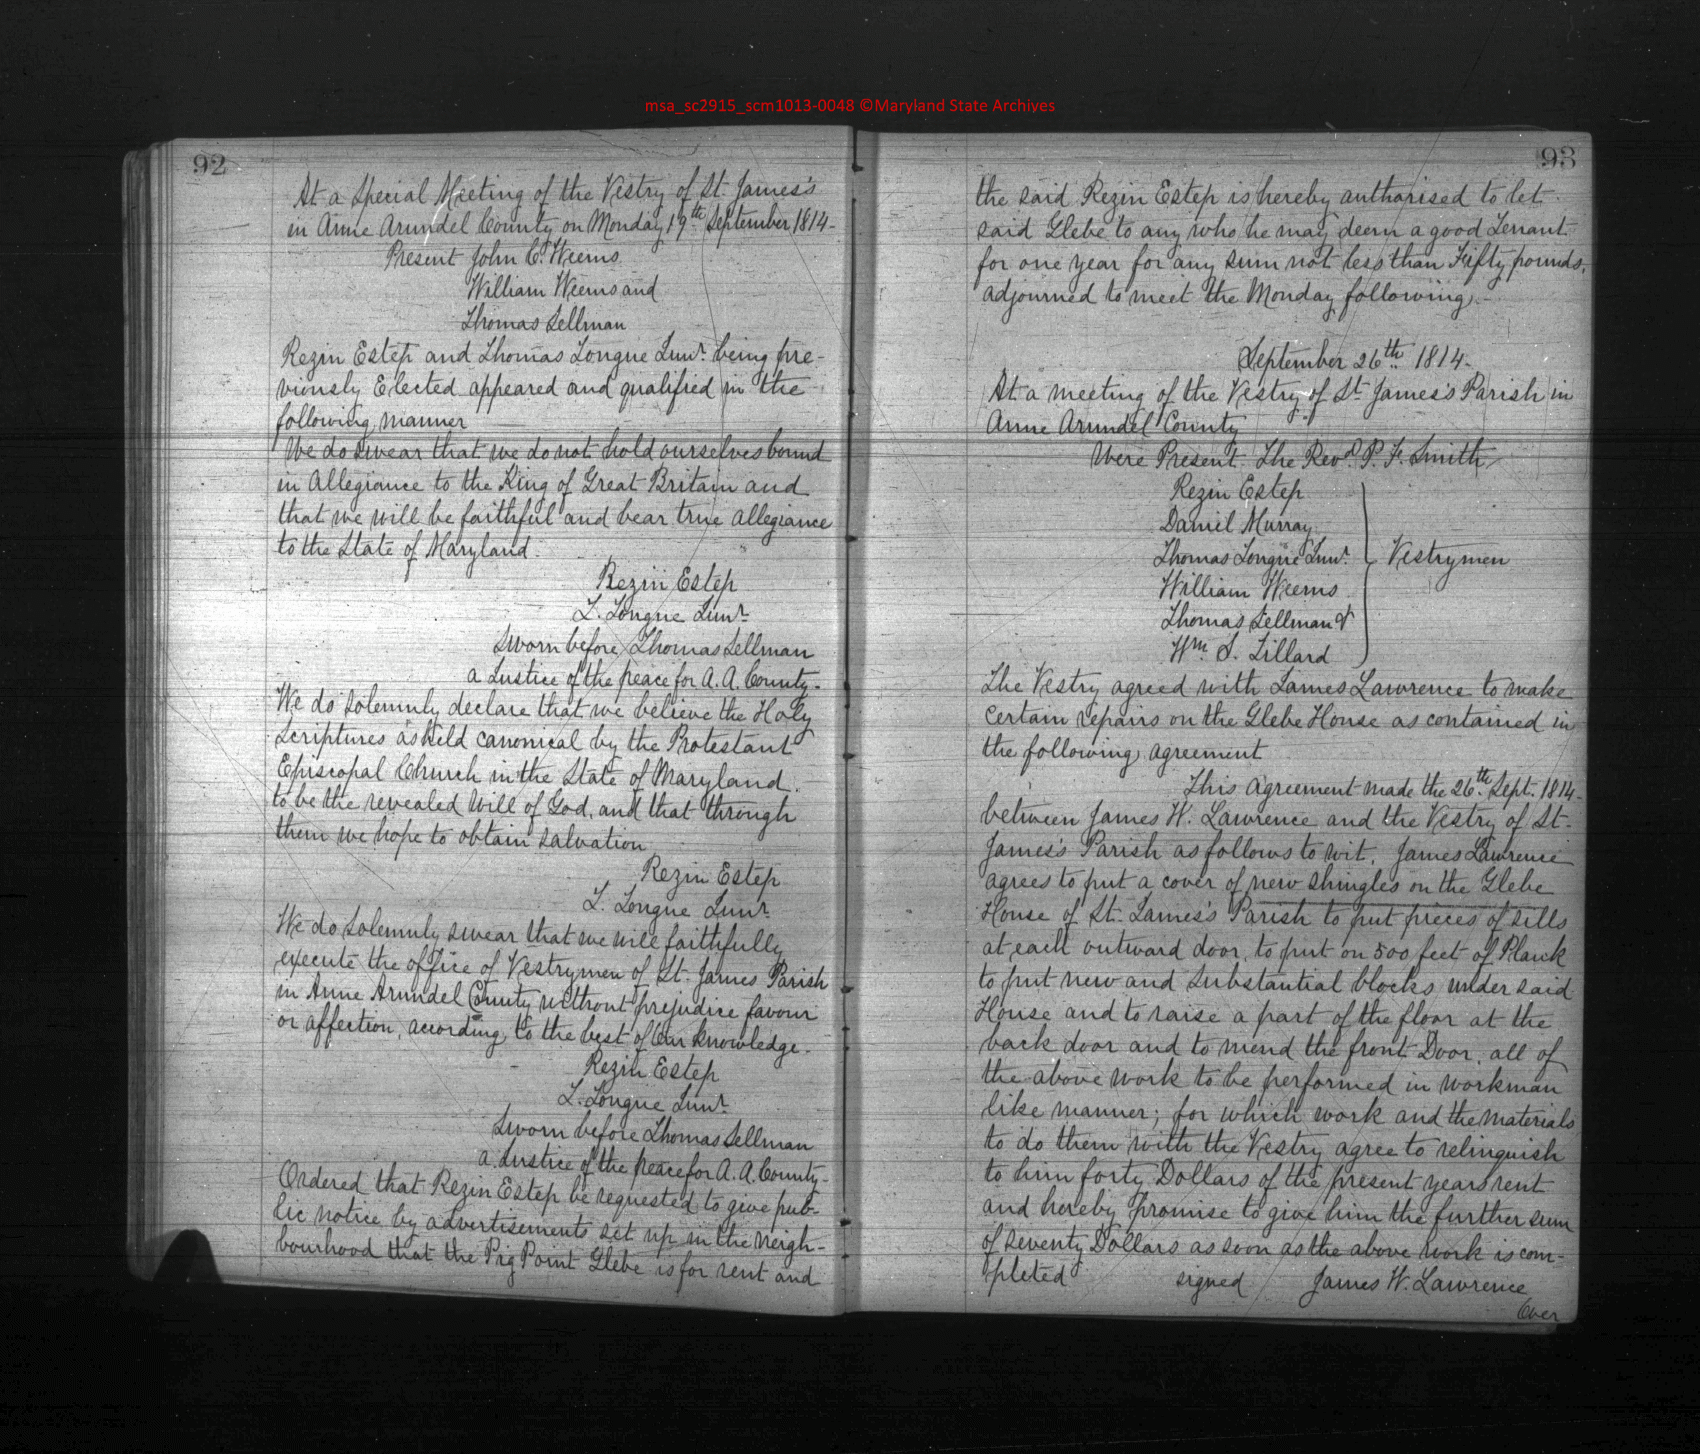 msa_sc2915_scm1013-0048 ©Maryland State Archives
92
At a Special Meeting of the Vestry of St. James's
in Anne Arundel County on Monday 19th September 1814-
Present John C. Weems
William Weems and
Thomas Sellman
Rezin Estep and Thomas Tongue Junr. being pre-
viously Elected appeared and qualified in the
following manner
We do swear that we do not hold ourselves bound
in Allegiance to the King of Great Britain and
that we will be faithful and bear true allegiance
to the State of Maryland.
Rezin Estep
T. Tongue Junr.
Sworn before Thomas Sellman
a Justice of the peace for A. A. County-
We do solemnly declare that we believe the Holy
Scriptures as held canonical by the Protestant
Episcopal Church in the State of Maryland.
to be the revealed Will of God, and that through
them we hope to obtain salvation
Rezin Estep
T. Tongue Junr.
We do solemnly swear that we will faithfully
execute the office of Vestrymen of St. James Parish
in Anne Arundel County without prejudice favour
or affection, according to the best of our knowledge-
Rezin Estep
T. Tongue Junr.
Sworn before Thomas Sellman
a Justice of the peace for A. A. County-
Ordered that Rezin Estep be requested to give pub-
lic notice by advertisements set up in the neigh-
bourhood that the Pig Point Glebe is for rent and
93
the said Rezin Estep is hereby authorised to let
said Glebe to any who he may deem a good Tenant
for one year for any sum not less than Fifty pounds.
adjourned to meet the Monday following.-
September 26th 1814-
At a meeting of the Vestry of St. James's Parish in
Anne Arundel County
Were Present The Revd. P. F. Smith
Rezin Estep
Daniel Murray
Thomas Tongue Junr. Vestrymen
William Weems
Thomas Sellman &
Wm. S. Tillard
The Vestry agreed with James Lawrence to make
certain repairs on the Glebe House as contained in
the following agreement
This Agreement made the 26th Sept. 1814-
between James W. Lawrence and the Vestry of St.
James's Parish as follows to wit, James Lawrence
agrees to put a cover of new shingles on the Glebe
House of St. James's Parish to put pieces of sills
at each outward door, to put on 500 feet of Plank
to put new and substantial blocks under said
House and to raise a part of the floor at the
back door and to mend the front Door, all of
the above work to be performed in workman
like manner; for which work and the materials
to do them with the Vestry agree to relinquish
to him forty Dollars of the present years rent
and hereby promise to give him the further sum
of seventy Dollars as soon as the above work is com-
pleted signed James W. Lawrence
Over